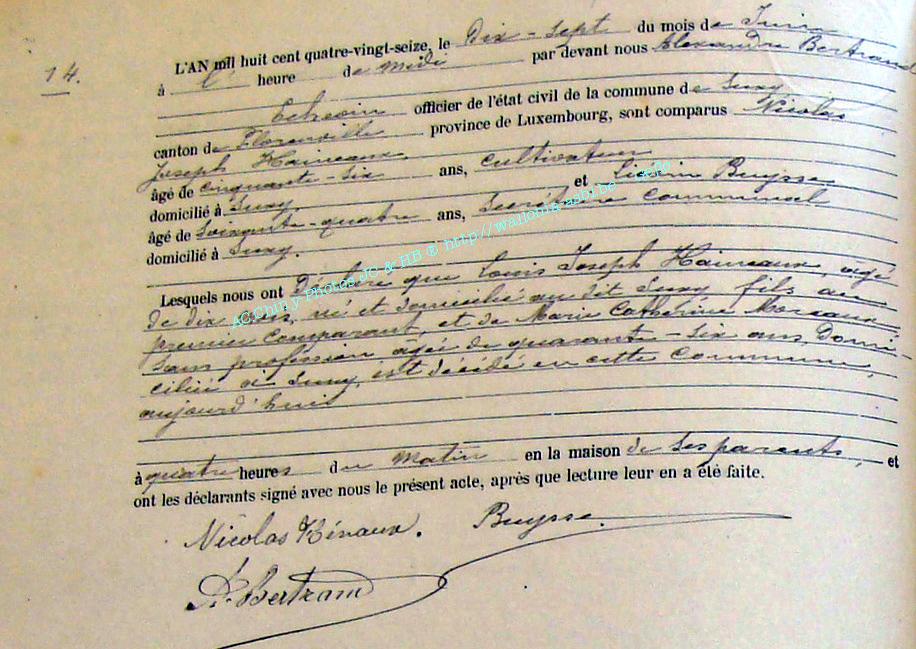 14.
L'AN mil huit cent quatre-vingt-seize, le Dix-sept du mois de Juin
à heure de midi par devant nous Alexandre Bertrand
Echevin officier de l'état civil de la commune de Suxy
canton de Florenville province de Luxembourg, sont comparus Nicolas
Joseph Haineaux
âgé de Cinquante-six ans, Cultivateur
domicilié à Suxy et Buysse
âgé de Soixante-quatre ans, Secrétaire Communal
domicilié à Suxy.
Lesquels nous ont Déclaré que Louis Joseph Haineaux, âgé
de dix ans, né et domicilié au dit Suxy fils au
premier Comparant et de Marie Catherine Moreaux,
sans profession âgée de quarante-six ans, Domi-
ciliée à Suxy, est décédé en cette Commune,
aujourd'hui
à quatre heures du matin en la maison de ses parents, et
ont les déclarants signé avec nous le présent acte, après que lecture leur en a été faite.
Nicolas Hénaux. Buysse.
A. Bertrand
AC Chiny Photos JC & HB @ http://wallonia-asbl.be